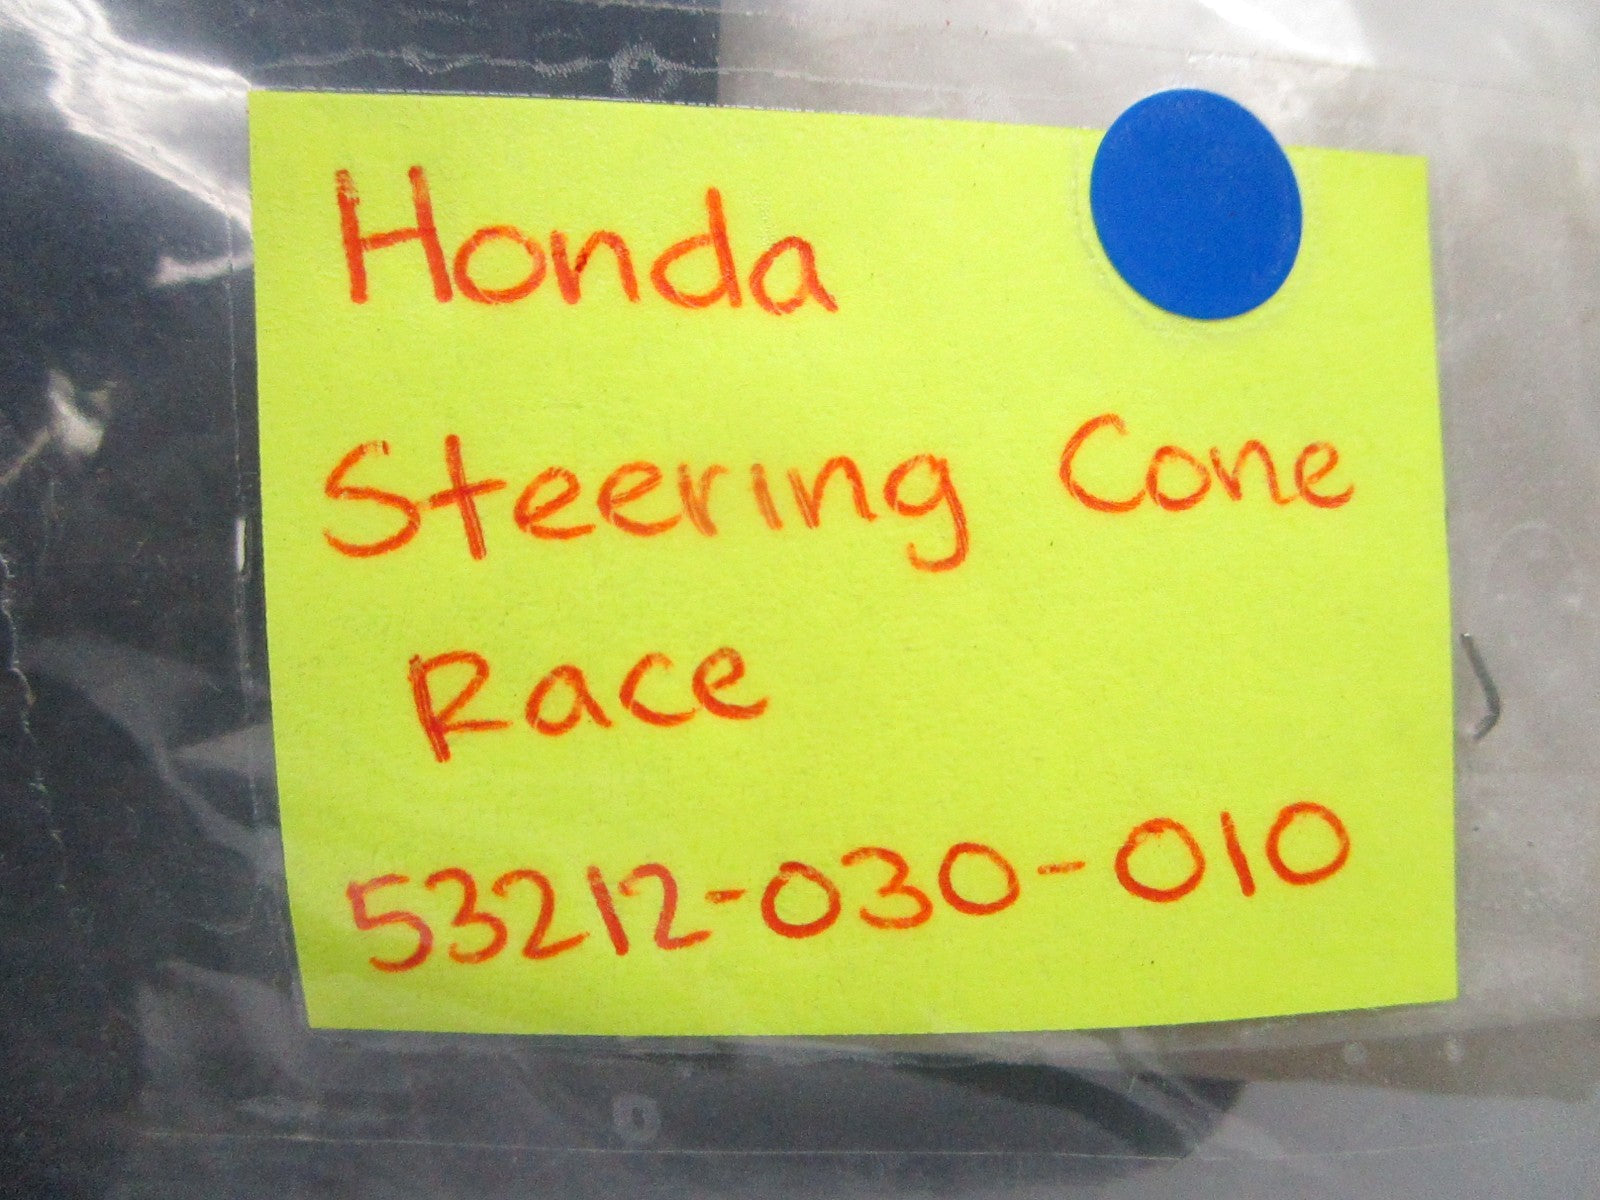 Honda
Steering Cone
Race
53212-030-010